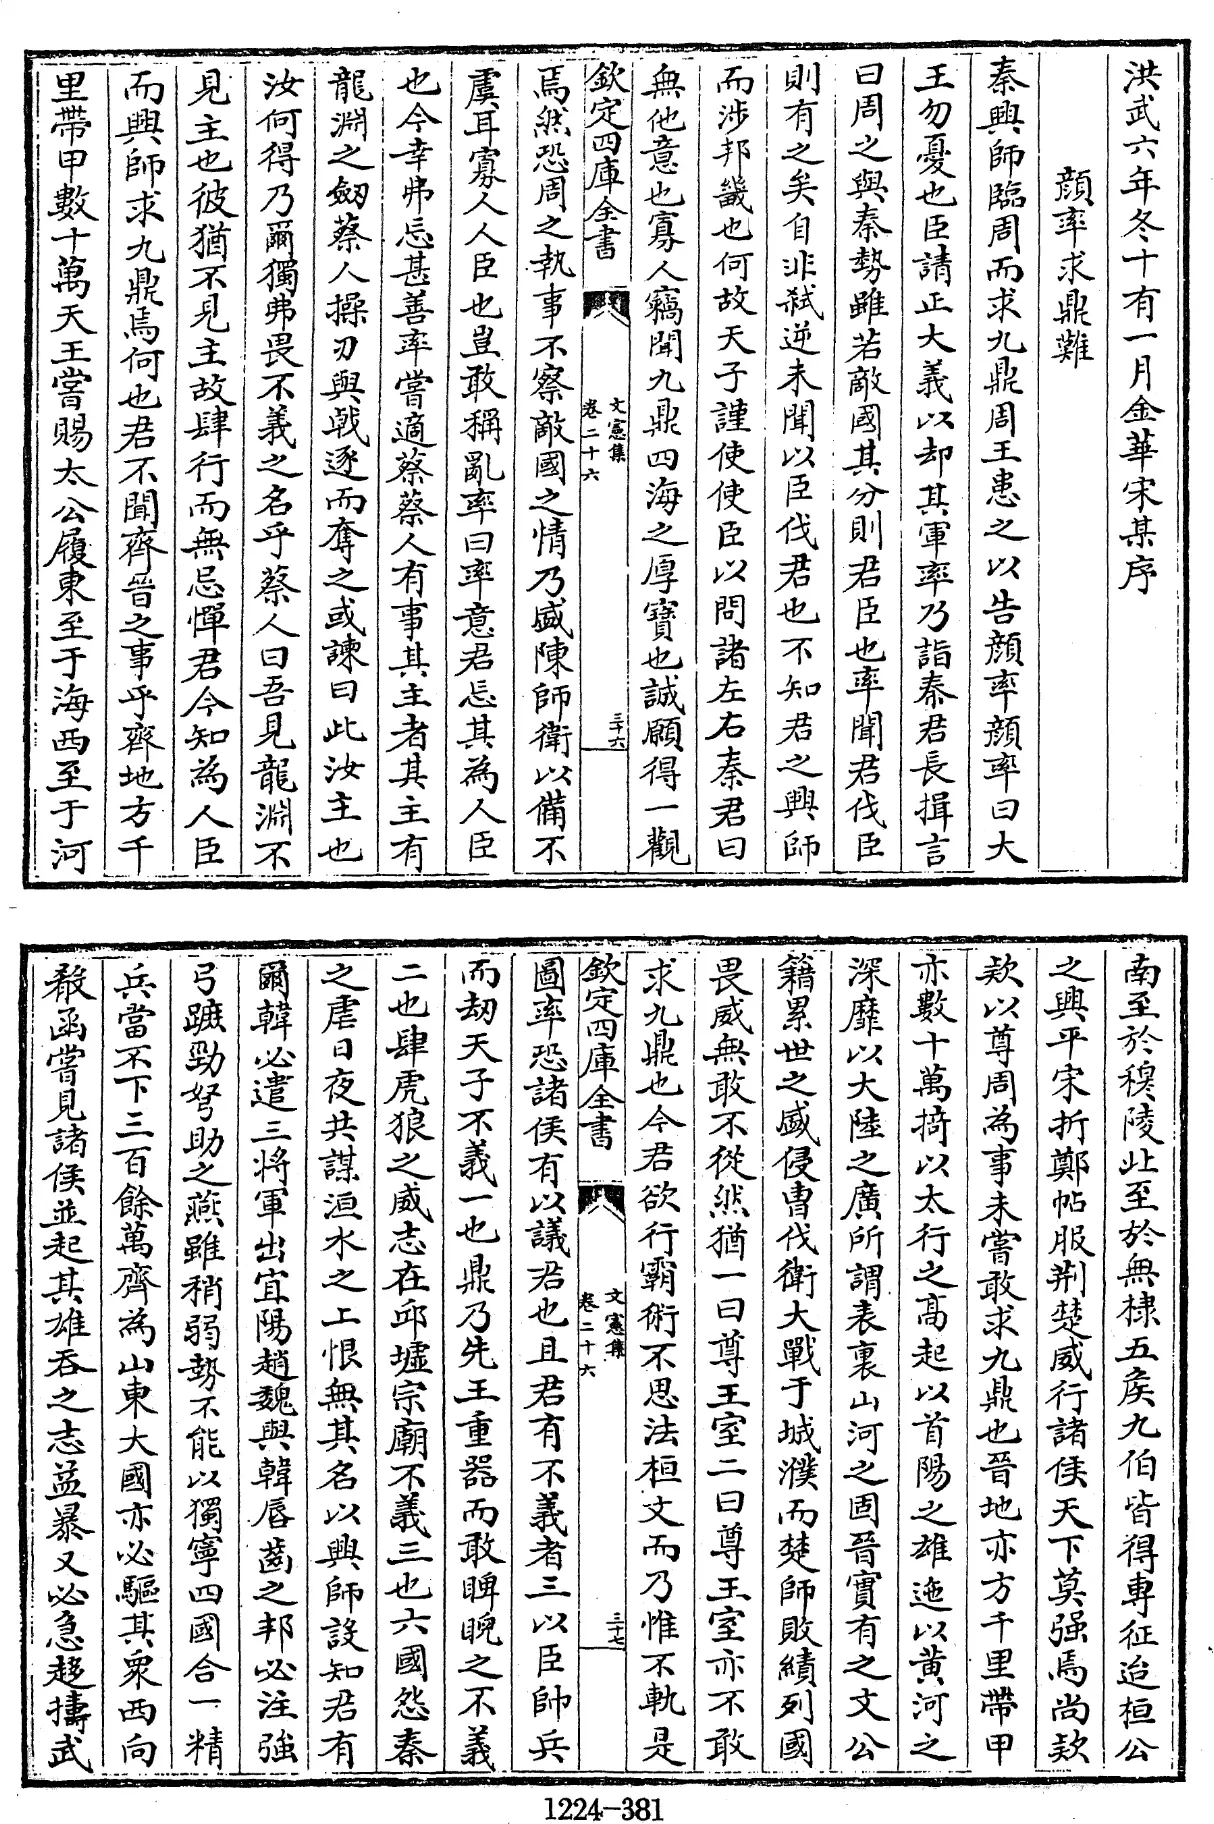 洪武六年冬十有一月金華宋某序
顔率求鼎難
秦興師臨周而求九鼎周王患之以告顔率顔率曰大
王勿憂也臣請正大義以却其軍率乃詣秦君長揖言
曰周之與秦勢雖若敵國其分則君臣也率聞君伐臣
則有之矣自非弑逆未聞以臣伐君也不知君之興師
而涉邦畿也何故天子謹使使臣以問諸左右秦君曰
無他意也寡人竊聞九鼎四海之厚寶也誠願得一觀
欽定四庫全書
文憲集
卷二十六
三十六
焉然恐周之執事不察敵國之情乃盛陳師衛以備不
虞耳寡人人臣也豈敢稱亂率曰率意君忘其為人臣
也今幸弗忘甚善率嘗適蔡蔡人有事其主者其主有
龍淵之劒蔡人操刃與戟逐而奪之或諫曰此汝主也
汝何得乃爾獨弗畏不義之名乎蔡人曰吾見龍淵不
見主也彼猶不見主故肆行而無忌憚君今知為人臣
而興師求九鼎焉何也君不聞齊晉之事乎齊地方千
里帶甲數十萬天王嘗賜太公履東至于海西至于河
南至於穆陵北至於無棣五侯九伯皆得專征迨桓公
之興平宋折鄭帖服荆楚威行諸侯天下莫强焉尚欵
欵以尊周為事未嘗敢求九鼎也晉地亦方千里帶甲
亦數十萬掎以太行之高起以首陽之雄迤以黄河之
深靡以大陸之廣所謂表裏山河之固晉實有之文公
籍累世之盛侵曹伐衛大戰于城濮而楚師敗績列國
畏威無敢不從然猶一曰尊王室二曰尊王室亦不敢
求九鼎也今君欲行霸術不思法桓文而乃惟不軌是
欽定四庫全書
文憲集
卷二十六
三十七
圖率恐諸侯有以議君也且君有不義者三以臣帥兵
而刼天子不義一也鼎乃先王重器而敢睥睨之不義
二也肆虎狼之威志在邱墟宗廟不義三也六國怨秦
之虐日夜共謀洹水之上恨無其名以興師設知君有
爾韓必遣三將軍出宜陽趙魏與韓唇齒之邦必注強
弓蹠勁弩助之燕雖稍弱勢不能以獨寧四國合一精
兵當不下三百餘萬齊為山東大國亦必驅其衆西向
殽函嘗見諸侯並起其雄吞之志益暴又必急趍擣武
1224-381